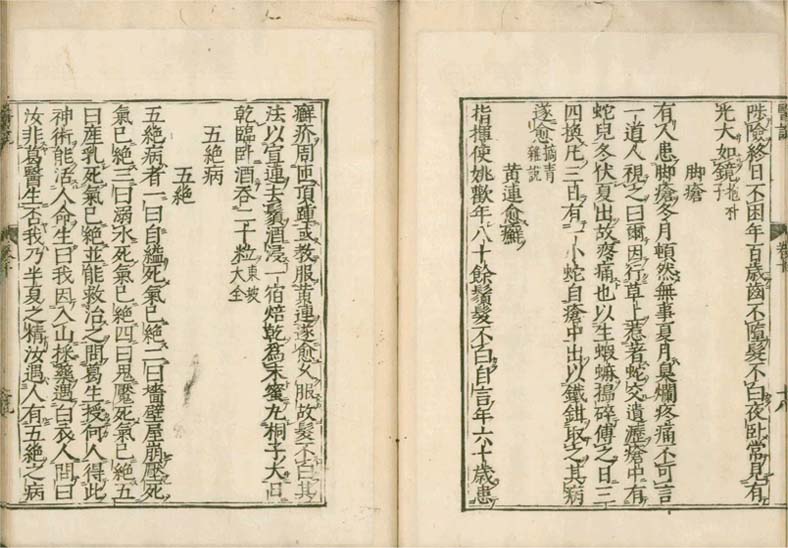 陟險終日不困年百歲齒不墮髮不白夜臥常見有
光大如鏡抱朴子
脚瘡
有人患脚瘡冬月頓然無事夏月臭爛疼痛不可言
一道人視之曰爾因行草上惹著蛇交遺瀝瘡中有
蛇兒冬伏夏出故疼痛也以生蝦蟆搗碎傅之日三
四換凡三日有一小蛇自瘡中出以鐵鉗取之其病
遂愈摭青雜說
黃連愈癬
指揮使姚歡年八十餘鬚髮不白自言年六十歲患
癬疥周匝頂踵或教服黃連遂愈久服故髮不白其
法以宣連去鬚酒浸一宿焙乾為末蜜丸桐子大日
乾臨臥酒吞二十粒東坡大全
五絕病
五絕
五絕病者一曰自縊死氣已絕二曰墻壁屋崩壓死
氣已絕三曰溺水死氣已絕四曰鬼魘死氣已絕五
曰産乳死氣已絕並能救治之問葛生授何人得此
神術能活人命生曰我因入山採藥遇白衣人問曰
汝非葛醫生否我乃半夏之精汝遇人有五絕之病